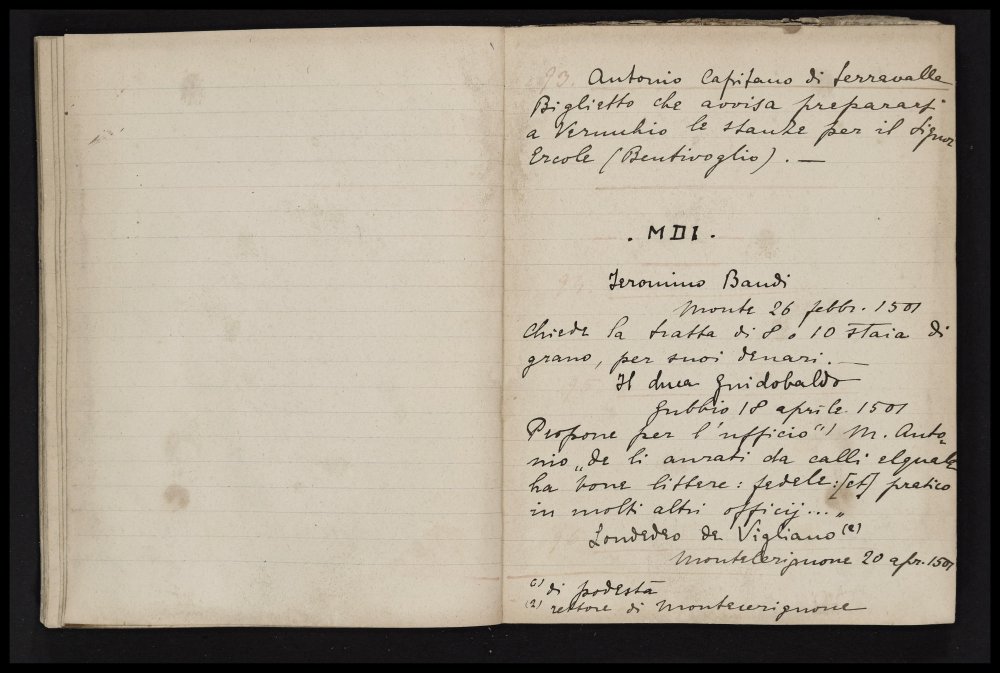 93. Antonio Capitano di Serravalle
Biglietto che avvisa prepararsi
a Verruchio le stanze per il Signor
Ercole (Bentivoglio). —
. MDI .
Jeronimo Bandi
Monte 26 febbr. 1501
Chiede la tratta di 8 o 10 staia di
grano, per suoi denari. —
Il duca Guidobaldo
Gubbio 18 aprile. 1501
Propone per l'ufficio (1) M. Anto-
nio „de li aurati da calli elquale
ha bone littere: fedele: [et] pratico
in molti altri officij...„
Londedeo de Vigliano (2)
Montecerignone 20 apr. 1501
(1) di podestà
(2) rettore di Montecerignone